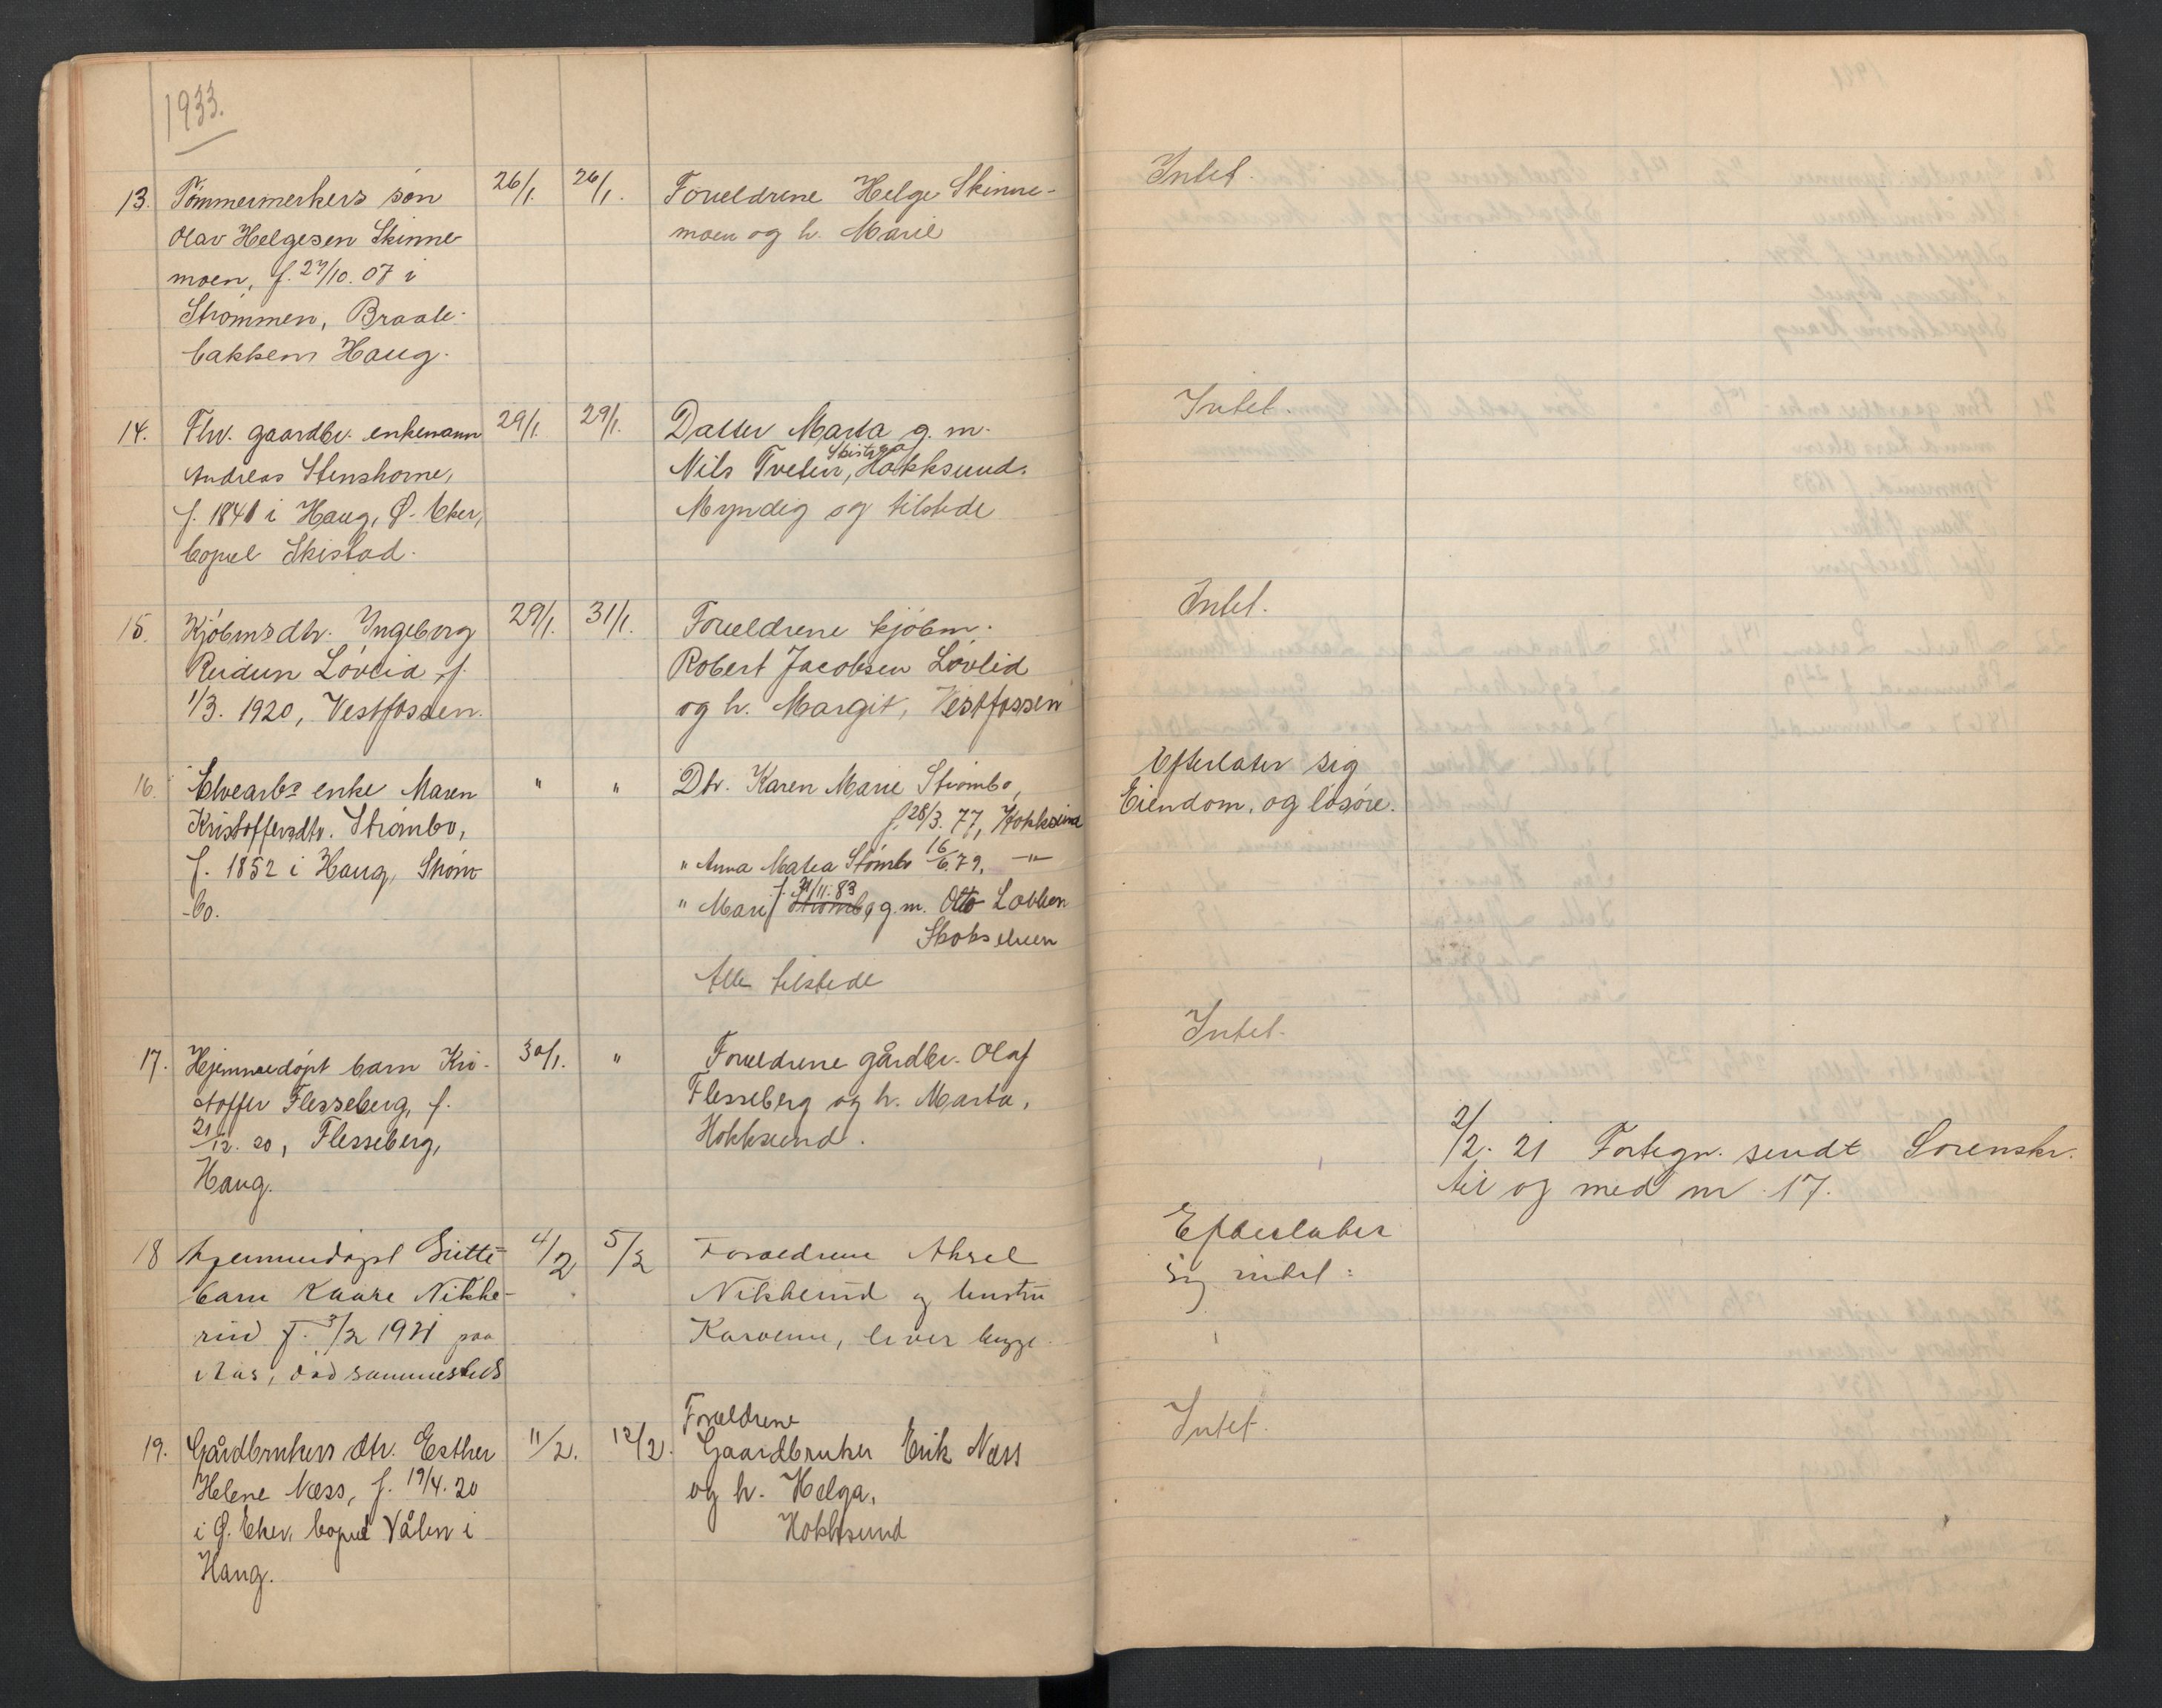 1933.
13. Tømmermerkers søn 26/1. 26/1. Forældrene Helge Skinne-
Olav Helgesen Skinne- moen og h. Marie
moen, f. 27/10. 07 i
Strømmen, Braate-
bakken Haug.
14. Fhv. gaardbr. enkemann 29/1. 29/1. Datter Marta g. m.
Andreas Stenshorne, Nils Tveten, Skistad Hokksund.
f. 1841 i Haug, Ø. Eker, Myndig og tilstede
bopæl Skistad.
15. Kjøbmsdtr. Ingeborg 29/1. 31/1. Forældrene kjøbm.
Reidun Løvlid, f. Robert Jacobsen Løvlid
1/3. 1920, Vestfossen. og h. Margit, Vestfossen
16. Elvearbs enke Maren " " Dtr. Karen Marie Strømbo,
Kristoffersdtr. Strømbo, f. 28/3. 77, Hokksund
f. 1852 i Haug, Strøm- " Anna Matea Strømbo 16/6. 79, -"-
bo. " Mari f. 21/11. 83 Strømbo g. m. Otto Løkken
Skotselven
Alle tilstede
17. Hjemmedøpt barn Kri- 30/1. " Forældrene gårdbr. Olaf
stoffer Flesseberg, f. Flesseberg og h. Marta,
21/12. 20, Flesseberg, Hokksund.
Haug.
18 hjemmedøpt Gutte- 4/2 5/2 Forældrene Aksel
barn Kaare Nikke- Nikkerud og hustru
rud f. 3/2 1921 paa Karoline, lever begge.
Aas, død sammesteds
19. Gårdbrukers dtr. Esther 11/2. 12/2. Forældrene
Helene Næss, f. 19/4. 20 Gaardbruker Erik Næss
i Ø. Eker, bopæl Vålen i og h. Helga,
Haug. Hokksund
Intet.
Intet.
Intet.
Efterlater sig
Eiendom, og løsøre.
Intet.
2/2. 21 Fortegn. sendt Sorenskr.
til og med nr. 17.
Efterlater
sig intet:
Intet.